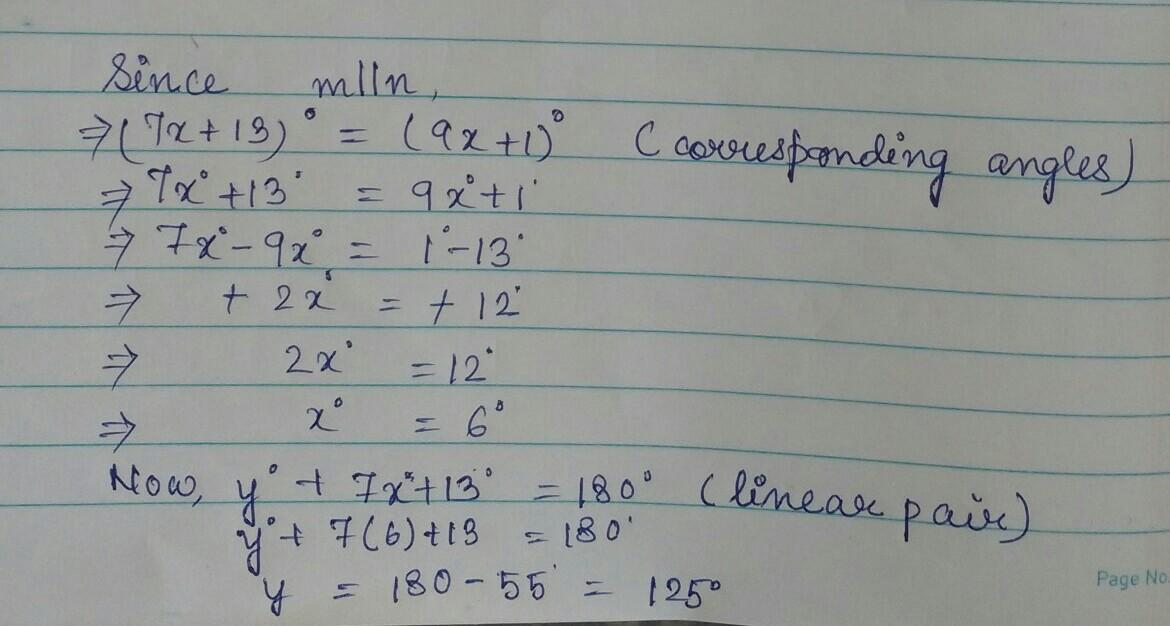 Since m||n,
⇒ (7x+13)° = (9x+1)° (corresponding angles)
⇒ 7x°+13° = 9x°+1°
⇒ 7x°-9x° = 1°-13°
⇒ +2x° = +12°
⇒ 2x° = 12°
⇒ x° = 6°
Now, y° + 7x°+13° = 180° (linear pair)
y°+ 7(6)+13 = 180°
y = 180-55° = 125°
Page No.